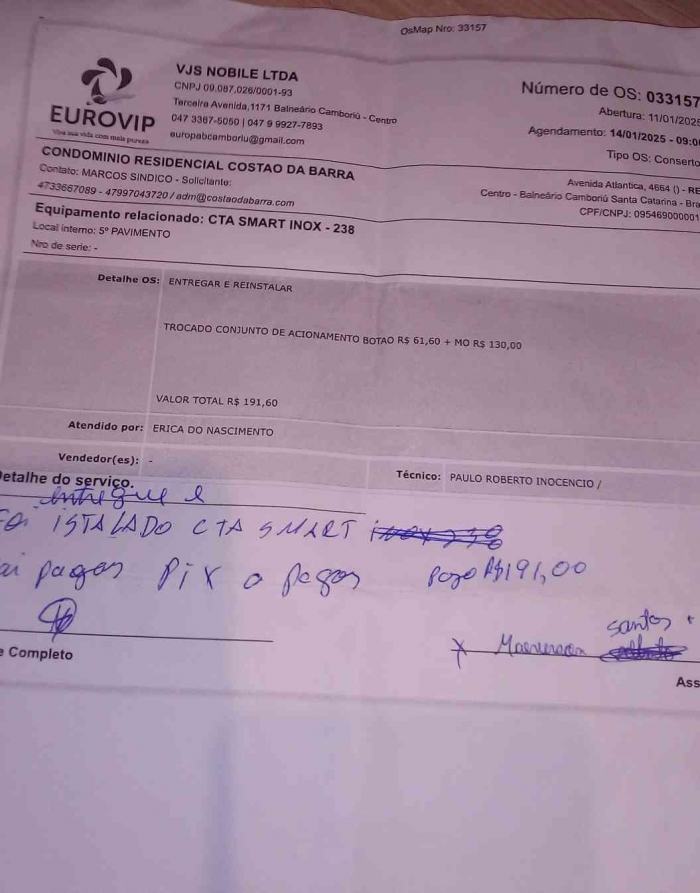 OsMap Nro: 33157
EUROVIP
Viva sua vida com mais pureza
VJS NOBILE LTDA
CNPJ 09.087.026/0001-93
Terceira Avenida,1171 Balneário Camboriú - Centro
047 3367-5050 | 047 9 9927-7893
europabcamboriu@gmail.com
Número de OS: 033157
Abertura: 11/01/2025
Agendamento: 14/01/2025 - 09:0
Tipo OS: Conserto
CONDOMINIO RESIDENCIAL COSTAO DA BARRA
Contato: MARCOS SINDICO - Solicitante:
4733667089 - 47997043720 / adm@costaodabarra.com
Avenida Atlantica, 4664 () - RE
Centro - Balneário Camboriú Santa Catarina - Bra
CPF/CNPJ: 095469000001
Equipamento relacionado: CTA SMART INOX - 238
Local interno: 5º PAVIMENTO
Nro de serie: -
Detalhe OS: ENTREGAR E REINSTALAR
TROCADO CONJUNTO DE ACIONAMENTO BOTAO R$ 61,60 + MO R$ 130,00
VALOR TOTAL R$ 191,60
Atendido por: ERICA DO NASCIMENTO
Vendedor(es): -
Técnico: PAULO ROBERTO INOCENCIO /
Detalhe do serviço.
entregue e
Foi ISTALADO CTA SMART
ai pagos PIX o pagos pago R$191,00
santos
X
e Completo
Ass